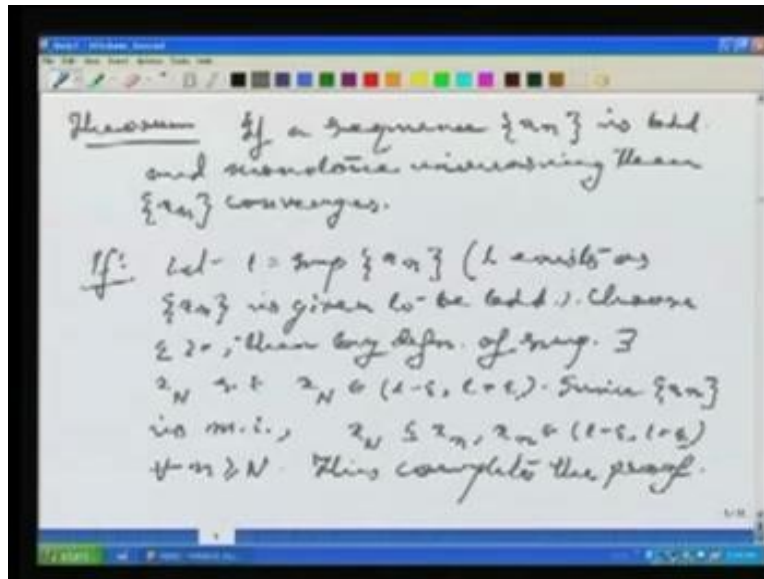 Theorem If a sequence {xn} is bdd.
and monotone increasing then
{xn} converges.
Pf: Let l = sup {xn} (l exists as
{xn} is given to be bdd.). Choose
ε > 0, then by defn. of sup. ∃
xN s.t. xN ∈ (l-ε, l+ε). Since {xn}
is m.i., xN ≤ xn, xn ∈ (l-ε, l+ε)
∀ n ≥ N. This completes the proof.